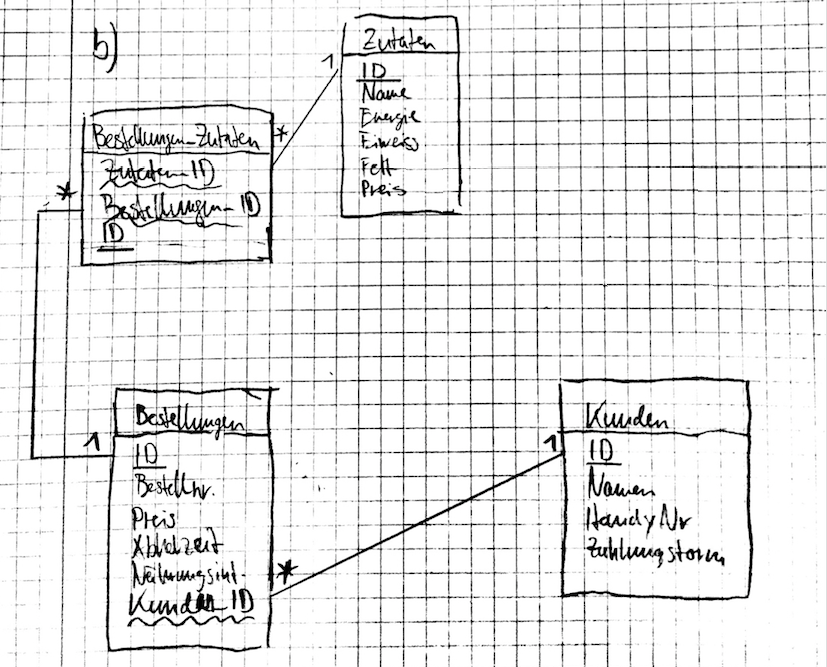 b)
Zutaten
1
ID
Name
Energie
Eiweiss
Fett
Preis
Bestellungen_Zutaten
*
Zutaten_ID
Bestellungen_ID
ID
*
Bestellungen
1
ID
Bestellnr.
Preis
Abholzeit
Nährungsinf.
Kunden_ID
*
Kunden
1
ID
Namen
HandyNr
Zahlungsform